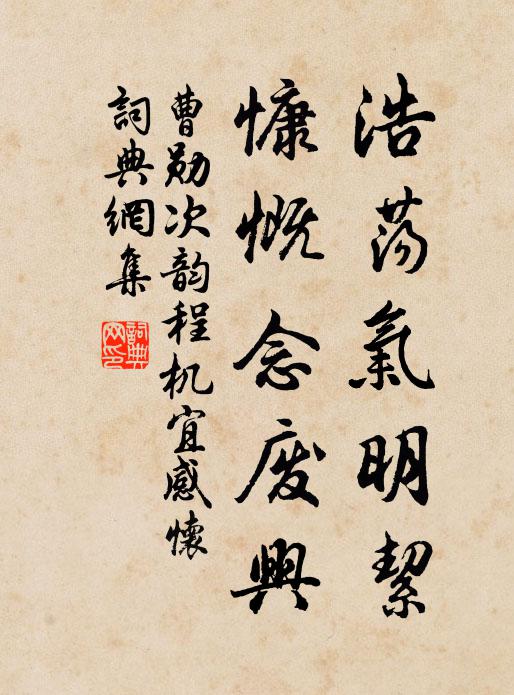 浩荡氣明絜
慷慨念废興
曹勋次韵程机宜感懷
詞典網集
詞典网印